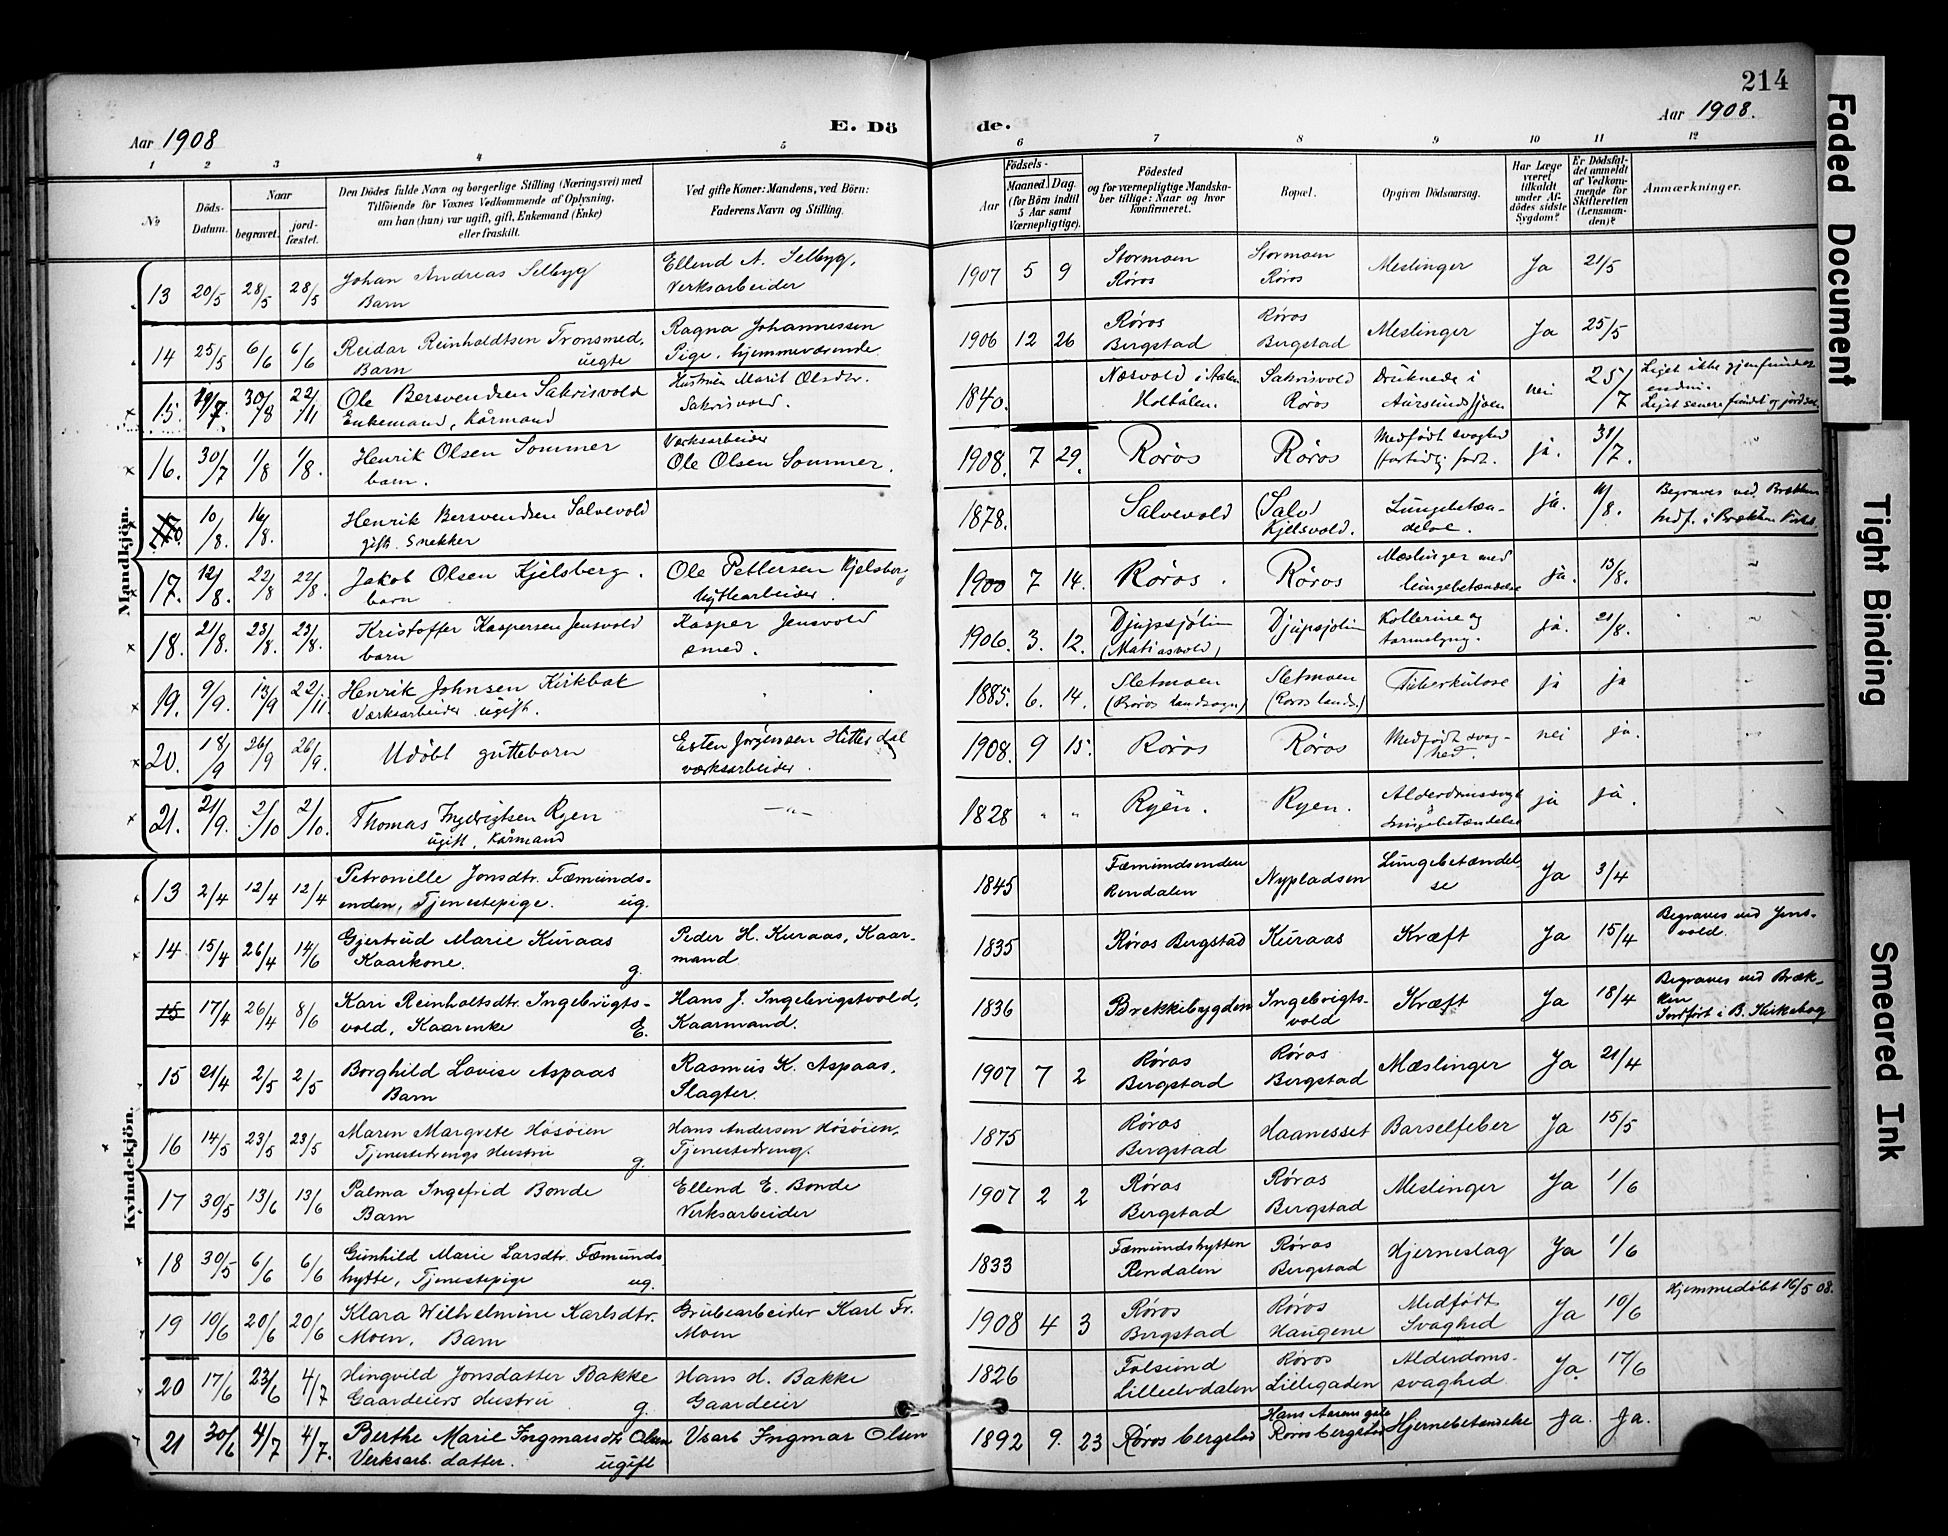 214
Aar 1908
E. Dö
de.
Aar 1908.
1 2 3 4 5 6 7 8 9 10 11 12
No
Döds-Datum.
Naar
begravet.
jord-fæstet.
Den Dödes fulde Navn og borgerlige Stilling (Næringsvei) med
Tilföiende for Voxnes Vedkommende af Oplysning,
om han (hun) var ugift, gift, Enkemand (Enke)
eller fraskilt.
Ved gifte Koner: Mandens, ved Börn:
Faderens Navn og Stilling.
Födsels-
Aar
Maaned. Dag.
(for Börn indtil
5 Aar samt
Værnepligtige).
Födested
og for værnepligtige Mandska-
ber tillige: Naar og hvor
konfirmeret.
Bopæl.
Opgiven Dödsaarsag.
Har Læge
været
tilkaldt
under Af-
dödes sidste
Sygdom?
Er Dödsfal-
det anmeldt
af Vedkom-
mende for
Skifteretten
(Lensman-
den)?
Anmærkninger.
Mandkjön.
13 20/5 28/5 28/5 Johan Andreas Selbyg Barn Ellend A. Selbyg, Verksarbeider 1907 5 9 Stormoen Røros Stormoen Røros Meslinger Ja 21/5
14 25/5 6/6 6/6 Reidar Reinholdtsen Tronsmed, Barn uegte Ragna Johannessen Pige, hjemmeværende 1906 12 26 Røros Bergstad Røros Bergstad Meslinger Ja 25/5
15. 19/7. 30/8 22/11 Ole Bersvendsen Sakrisvold Enkemand, Kårmand Hustruen Marit Olsdtr. Sakrisvold. 1840. Næsvold i Aalen Holtålen. Sakrisvold Røros Druknede i Aursundsjøen nei 25/7 Liget ikke gjenfundet endnu. Liget senere fundet og jordsat.
16. 30/7 1/8 1/8. Henrik Olsen Sommer barn. Værksarbeider Ole Olsen Sommer. 1908. 7 29. Røros Røros Medfødt svaghed (fortidlig født. ja. 31/7. "
10/8. 16/8. Henrik Bersvendsen Salvevold gift. Snekker 1878. Salvevold Kjelsvold. Lungebetændelse. ja. 11/8. Begraves ved Brækken Indf. i Brækken
17. 12/8. 22/8 22/8. Jakob Olsen Kjelsberg. barn Ole Pettersen Kjelsberg hyttearbeider. 1900 7 14. Røros. Røros Mæslinger med lungebetændelse ja. 13/8. "
18. 21/8. 23/8. 23/8. Kristoffer Kaspersen Jensvold barn Kasper Jensvold smed. 1906. 3. 12. Djupsjølien (Matiasvold) Djupsjølien Kollerine og tarmslyng. ja. 21/8. " "
19. 9/9. 13/9 22/11. Henrik Johnsen Kirkbak Værksarbeider ugift. " " 1885. 6. 14. Sletmoen (Røros landsogn) Sletmoen (Røros lands.) Tuberkulose ja ja "
20. 18/9 26/9 26/9. Udöbt guttebarn Esten Jørgensen Hitterdal værksarbeider. 1908. 9 15. Røros Røros Medfødt svag-hed. nei ja. "
21. 21/9. 2/10 2/10. Thomas Ingebrigtsen Ryen ugift, Kårmand —"— 1828 " " Ryen. Ryen. Alderdomssvagh & lungebetændelse ja ja.
Kvindekjön.
13 2/4 12/4 12/4 Petronille Jonsdtr. Fæmunds-enden, Tjenestepige. ug. 1845 Fæmundsenden Rendalen Nypladsen Lungebetændel-se Ja 3/4
14 15/4 26/4 14/6 Gjertrud Marie Kuraas Kaarkone. g. Peder H. Kuraas, Kaar-mand 1835 Røros Bergstad Kuraas Kræft Ja 15/4 Begraves ved Jens-vold.
15 17/4 26/4 8/6 Kari Reinholtsdtr. Ingebrigts-vold, Kaarenke E. Hans J. Ingebrigtsvold, Kaarmand. 1836 Brekkebygden Ingebrigts-vold Kræft Ja 18/4 Begraves ved Bræk-ken Indført i B. Kirkebog
15 21/4 2/5 2/5 Borghild Lovise Aspaas Barn Rasmus K. Aspaas, Slagter. 1907 7 2 Røros Bergstad Røros Bergstad Mæslinger Ja 21/4
16 14/5 23/5 23/5 Maren Margrete Høsøien Tjenestedrengs Hustru g. Hans Andersen Høsøien, Tjenestedreng. 1875 Røros Bergstad Haanesset Barselfeber Ja 15/5
17 30/5 13/6 13/6 Palma Ingefrid Bonde Barn Ellend E. Bonde Verksarbeider 1907 2 2 Røros Bergstad Røros Bergstad Meslinger Ja 1/6
18 30/5 6/6 6/6 Gunhild Marie Larsdtr. Fæmunds hytte, Tjenestepige ug. 1833 Fæmundshytten Rendalen Røros Bergstad Hjerneslag Ja 1/6
19 10/6 20/6 20/6 Klara Wilhelmine Karlsdtr. Moen, Barn Grubearbeider Karl Fr. Moen 1908 4 3 Røros Bergstad Røros Haugene Medfødt Svaghed Ja 10/6 Hjemmedøbt 16/5 08.
20 17/6 23/6 4/7 Hingvild Jonsdatter Bakke Gaardeiers Hustru g. Hans H. Bakke Gaardeier 1826 Folsund Lilleelvdalen Røros Lillegaden Alderdoms-svaghed. Ja 17/6
21 30/6 4/7 4/7. Berthe Marie Ingmarsdtr Olsen Verksarb. datter. ugift Vsarb Ingmar Olsen 1892 9. 23 Røros bergstad Hans Aasens gate Røros bergstad Hjernebetændelse Ja. Ja.
Faded Document
Tight Binding
Smeared Ink